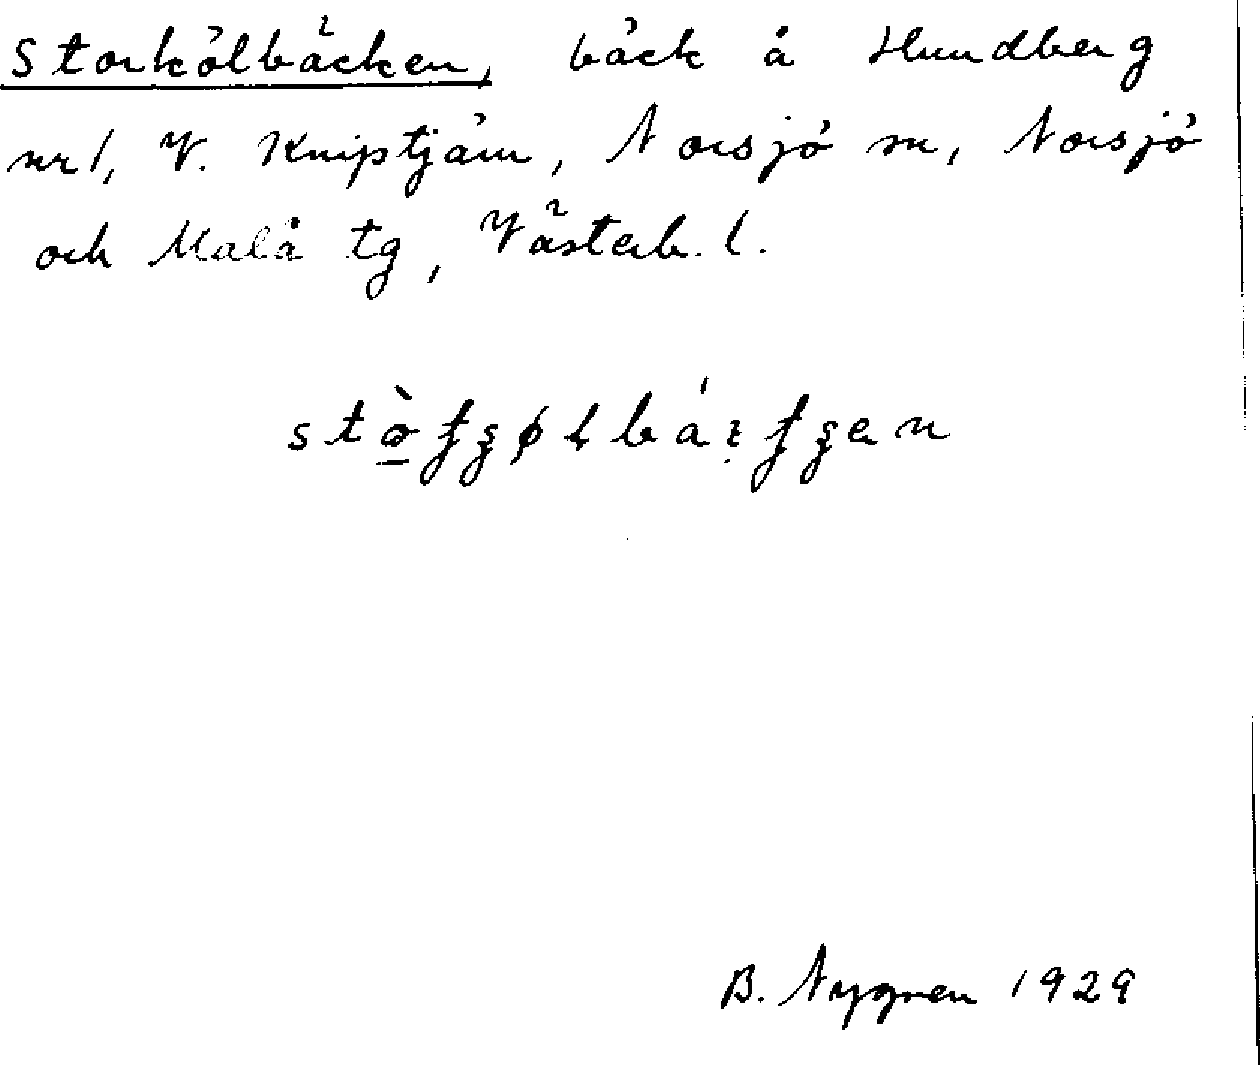 Storkölbäcken, bäck å Hundberg
nr 1, V. Kniptjärn, Norsjö sn, Norsjö
och Malå tg, Västerb. l.
B. Nygren 1929